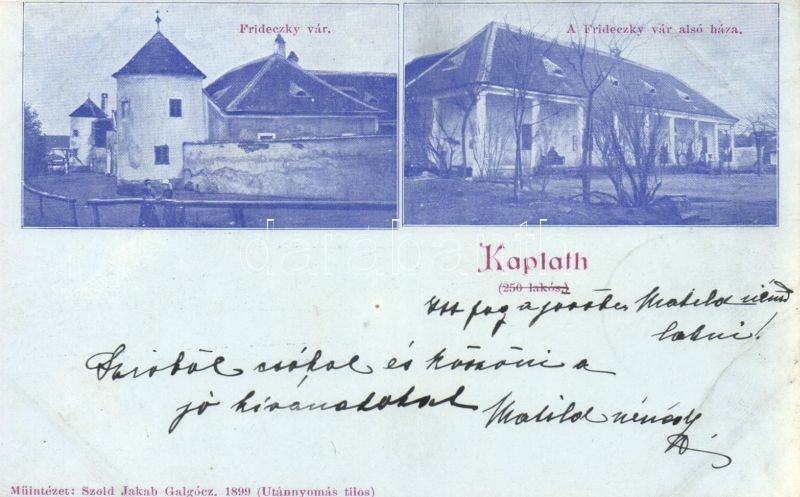 Frideczky vár.
A Frideczky vár alsó háza.
darabanth
Kaplath
(250 lakós.)
Itt fog a jövőbe Matild néni
lakni!
Szivből csókol és köszöni a
jó kívánatokat Matild nénéd
Műintézet: Szold Jakab Galgócz. 1899 (Utánnyomás tilos)